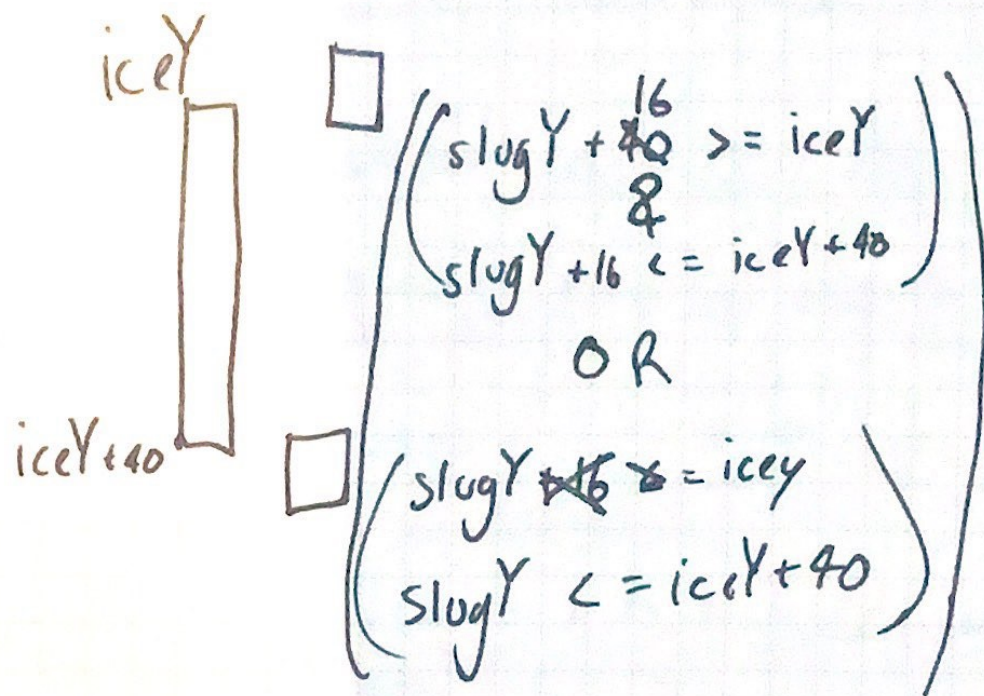 iceY
16
slugY + 40 >= iceY
&
slugY +16 <= iceY+40
OR
iceY+40
slugY +16 >= icey
slugY <= iceY+40